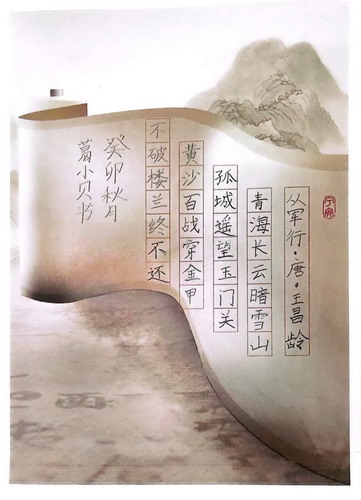 从军行·唐·王昌龄
青海长云暗雪山
孤城遥望玉门关
黄沙百战穿金甲
不破楼兰终不还
癸卯秋月
葛小贝书